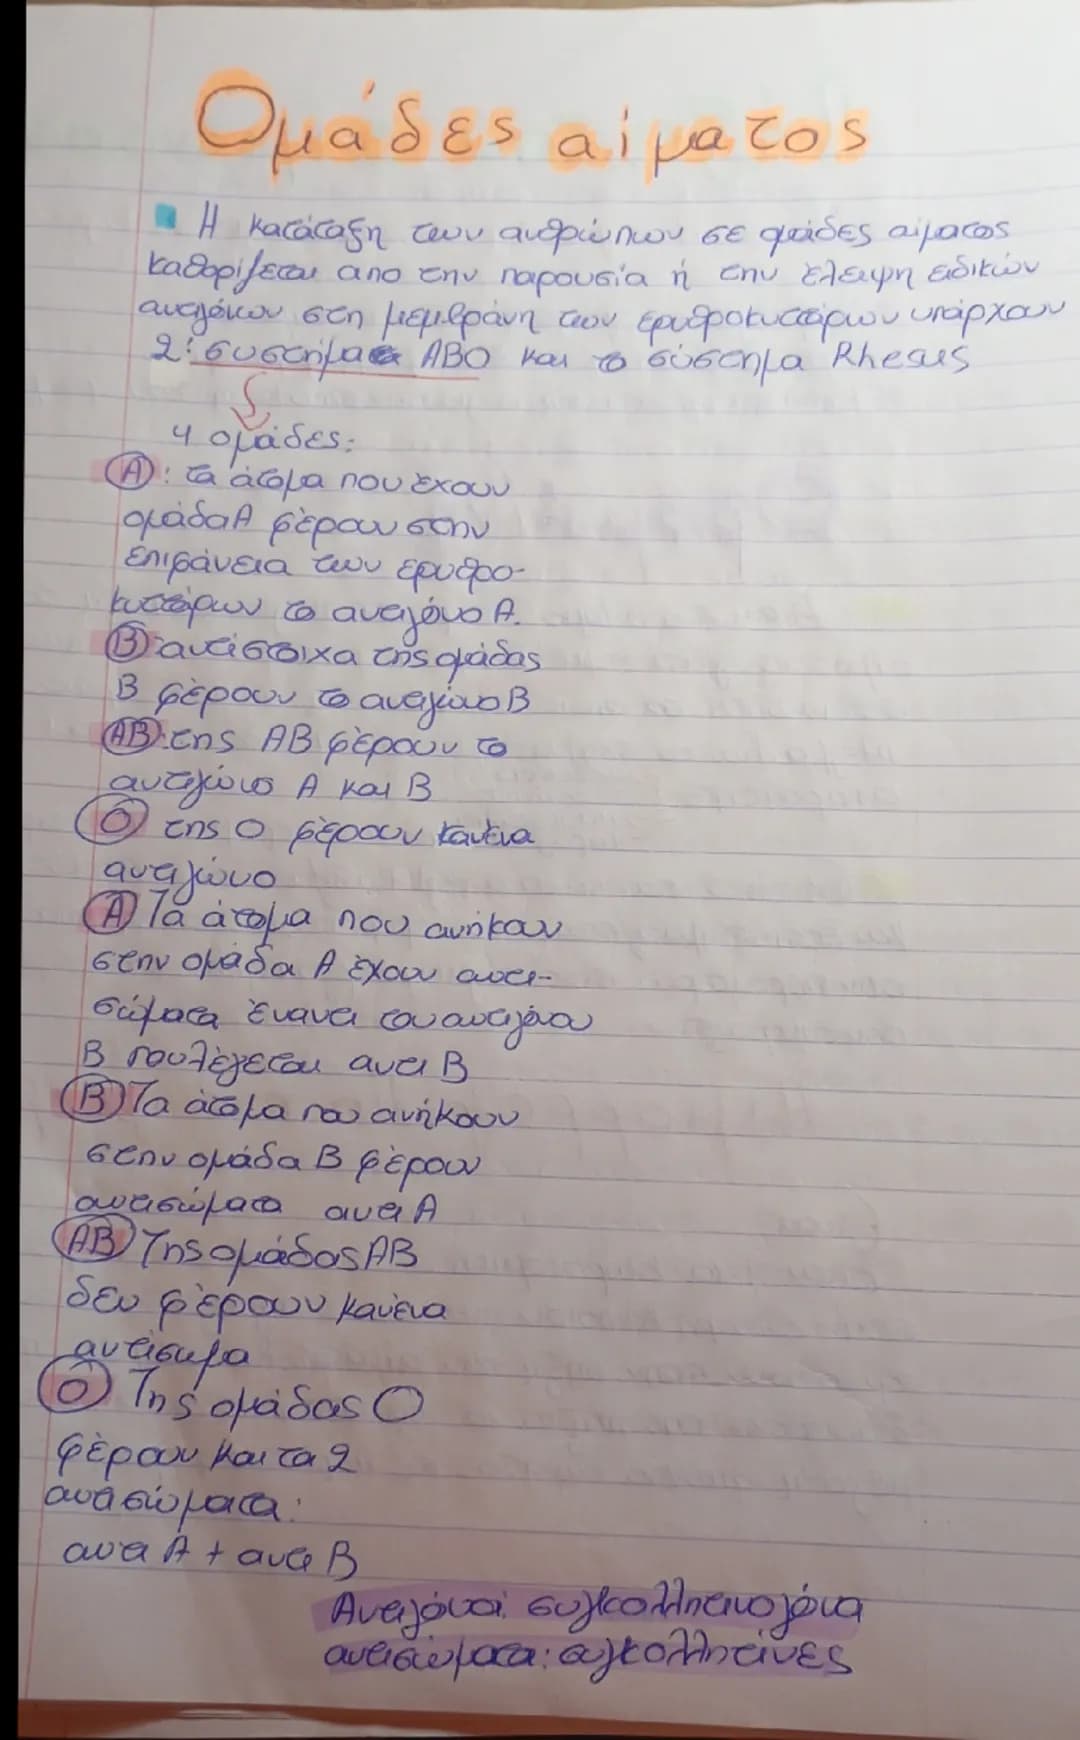 Ομάδες αίματος
Η κατάταξη των ανθρώπων σε ομάδες αίματος
καθορίζεται απο την παρουσία ή την έλειψη ειδικών
αντιγόνων στη μεμβράνη των ερυθροκυττάρων υπάρχουν
2: συστήματα ΑΒΟ και το σύστημα Rhesus
4 ομάδες:
Α: τα άτομα που έχουν
ομάδα Α φέρουν στην
επιφάνεια των ερυθρο-
κυττάρων το αντιγόνο Α.
Β αντίστοιχα της ομάδας
Β φέρουν το αντιγόνο Β
ΑΒ: της ΑΒ φέρουν το
αντιγόνο Α και Β
Ο της Ο φέρουν κανένα
αντιγόνο
Α Τα άτομα που ανήκουν
στην ομάδα Α έχουν αντι-
σώματα έναντι του αντιγόνου
Β που λέγεται αντι Β
Β Τα άτομα που ανήκουν
στην ομάδα Β φέρουν
αντισώματα αντι Α
ΑΒ Της ομάδας ΑΒ
δεν φέρουν κανένα
αντίσωμα
Ο Της ομάδας Ο
φέρουν και τα 2
αντισώματα:
αντι Α + αντι Β
Αντιγόνοι: συγκολλητινογόνα
αντισώματα: συγκολλητίνες